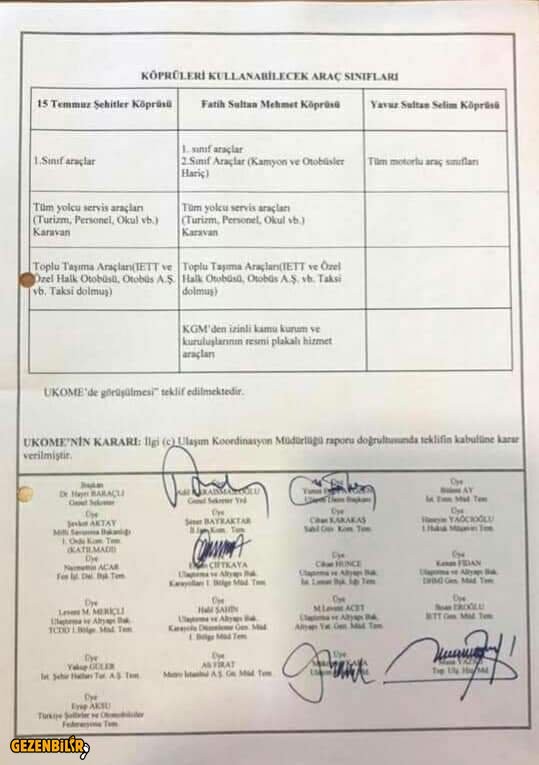 KÖPRÜLERİ KULLANABİLECEK ARAÇ SINIFLARI
15 Temmuz Şehitler Köprüsü
Fatih Sultan Mehmet Köprüsü
Yavuz Sultan Selim Köprüsü
1.Sınıf araçlar
1. sınıf araçlar
2.Sınıf Araçlar (Kamyon ve Otobüsler
Hariç)
Tüm motorlu araç sınıfları
Tüm yolcu servis araçları
(Turizm, Personel, Okul vb.)
Karavan
Tüm yolcu servis araçları
(Turizm, Personel, Okul vb.)
Karavan
Toplu Taşıma Araçları(IETT ve
Özel Halk Otobüsü, Otobüs A.Ş.
vb. Taksi dolmuş)
Toplu Taşıma Araçları(IETT ve Özel
Halk Otobüsü, Otobüs A.Ş. vb. Taksi
dolmuş)
KGM'den izinli kamu kurum ve
kuruluşlarının resmi plakalı hizmet
araçları
UKOME'de görüşülmesi" teklif edilmektedir.
UKOME'NİN KARARI: İlgi (c) Ulaşım Koordinasyon Müdürlüğü raporu doğrultusunda teklifin kabulüne karar
verilmiştir.
Başkan
Dr. Hayri BARAÇLI
Genel Sekreter
Genel Sekreter Yrd.
Ulaşım Daire Başkanı
Bülent AY
İst. Emn. Müd. Tem.
Üye
Şevket AKTAY
Milli Savunma Bakanlığı
1. Ordu Kom. Tem.
(KATILMADI)
Üye
Şener BAYRAKTAR
İl Jan. Kom. Tem.
Üye
Cihan KARAKAŞ
Sahil Güv. Kom. Tem.
Üye
Hüseyin YAĞCIOĞLU
1.Hukuk Müşaviri Tem.
Üye
Necmettin ACAR
Fen İşl. Dai. Bşk Tem.
ÇİFTKAYA
Ulaştırma ve Altyapı Bak.
Karayolları 1. Bölge Müd. Tem.
Üye
Cihan HUNCE
Ulaştırma ve Altyapı Bak.
İst. Liman Bşk. lığı Tem.
Üye
Kenan FİDAN
Ulaştırma ve Altyapı Bak.
DHMİ Gen. Müd. Tem.
Üye
Levent M. MERİÇLİ
Ulaştırma ve Altyapı Bak.
TCDD 1.Bölge. Müd. Tem.
Üye
Halil ŞAHİN
Ulaştırma ve Altyapı Bak.
Karayolu Düzenleme Gen. Müd.
1. Bölge Müd. Tem
Üye
M.Levent ACET
Ulaştırma ve Altyapı Bak.
Altyapı Yat. Gen. Müd. Tem.
Üye
İhsan EROĞLU
İETT Gen. Müd. Tem.
Üye
Yakup GÜLER
İst. Şehir Hatları Tur. A.Ş. Tem.
Üye
Ali FIRAT
Metro İstanbul A.Ş. Gn. Müd. Tem.
Üye
Üye
Top. Ulş. Hiz. Md.
Üye
Eyup AKSU
Türkiye Şoförler ve Otomobilciler
Federasyonu Tem.
GEZENBİLİR